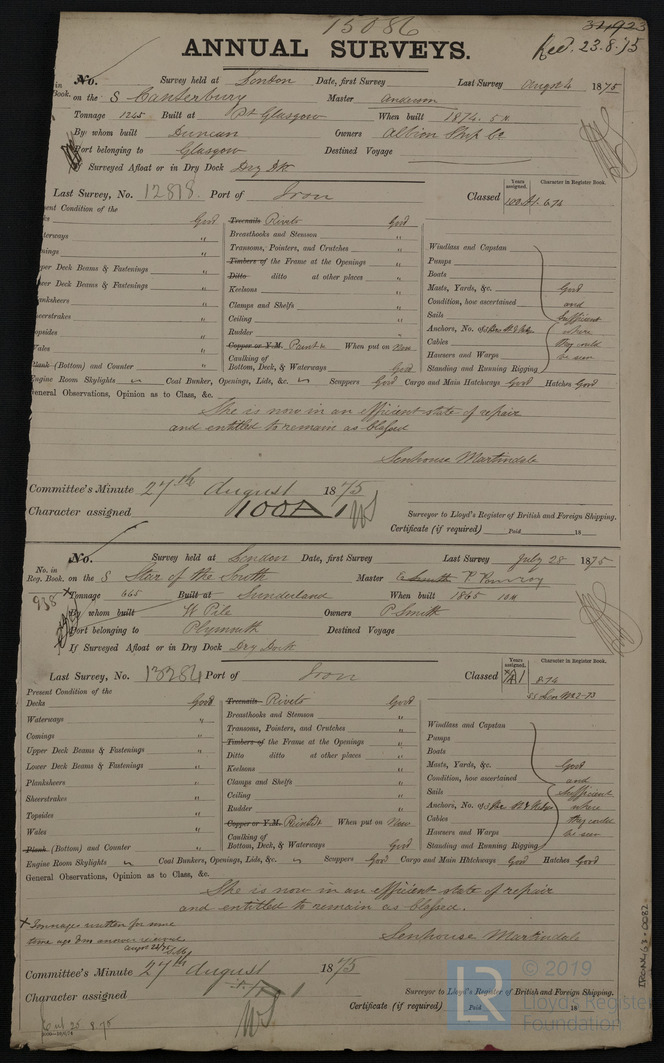 15086
31923
ANNUAL SURVEYS.
Rec. 23.8.75
No. Survey held at London Date, first Survey Last Survey August 4 1875
in Book. on the S Canterbury Master Anderson
Tonnage 1245 Built at Pt Glasgow When built 1874. 5 m.
By whom built Duncan Owners Albion Ship Co
Port belonging to Glasgow Destined Voyage
Surveyed Afloat or in Dry Dock Dry Dk
Last Survey, No. 12818. Port of Iron Classed Years assigned. Character in Register Book.
100 A1. 6.74
Present Condition of the
Good Treenails Rivets Good
Waterways " Breasthooks and Stemson " Windlass and Capstan
" Transoms, Pointers, and Crutches " Pumps
Upper Deck Beams & Fastenings " Timbers of the Frame at the Openings " Boats
Lower Deck Beams & Fastenings " Ditto ditto at other places " Masts, Yards, &c. Good
Planksheers " Keelsons " Condition, how ascertained and
Sheerstrakes " Clamps and Shelfs " Sails Sufficient
Topsides " Ceiling " Anchors, No. of where
Wales " Rudder " Cables they could
Plank (Bottom) and Counter " Copper or Y.M. Paint When put on Now Hawsers and Warps be seen
Caulking of Bottom, Deck, & Waterways Good Standing and Running Rigging
Engine Room Skylights Coal Bunker, Openings, Lids, &c. Scuppers Good Cargo and Main Hatchways Good Hatches Good
General Observations, Opinion as to Class, &c.
She is now in an efficient state of repair
and entitled to remain as Classed
Senhouse Martindale
Committee's Minute 27th August 1875
Character assigned 100A1
Surveyor to Lloyd's Register of British and Foreign Shipping.
Certificate (if required) Paid 18
No. Survey held at London Date, first Survey Last Survey July 28 1875
No. in Reg. Book. on the S Star of the South Master
938 × Tonnage 665 Built at Sunderland When built 1865 10 m
By whom built W Pile Owners P Smith
Port belonging to Plymouth Destined Voyage
If Surveyed Afloat or in Dry Dock Dry Dock
Last Survey, No. 13284 Port of Iron Classed Years assigned. Character in Register Book.
A1 8.74
Present Condition of the
Decks Good Treenails Rivets Good
Waterways " Breasthooks and Stemson " Windlass and Capstan
Comings " Transoms, Pointers, and Crutches " Pumps
Upper Deck Beams & Fastenings " Timbers of the Frame at the Openings " Boats
Lower Deck Beams & Fastenings " Ditto ditto at other places " Masts, Yards, &c. Good
Planksheers " Keelsons " Condition, how ascertained and
Sheerstrakes " Clamps and Shelfs " Sails Sufficient
Topsides " Ceiling " Anchors, No. of where
Wales " Rudder " Cables they could
Plank (Bottom) and Counter " Copper or Y.M. When put on Now Hawsers and Warps be seen
Caulking of Bottom, Deck, & Waterways Good Standing and Running Rigging
Engine Room Skylights Coal Bunkers, Openings, Lids, &c. Scuppers Good Cargo and Main Hatchways Good Hatches Good
General Observations, Opinion as to Class, &c.
She is now in an efficient state of repair
and entitled to remain as Classed.
× Tonnage written for some
time ago & no answer received
Senhouse Martindale
Committee's Minute 27th August 1875
Character assigned
Surveyor to Lloyd's Register of British and Foreign Shipping.
Certificate (if required) Paid 18
25.8.75
IRONK43-0082
LR
© 2019
Lloyd's Register
Foundation